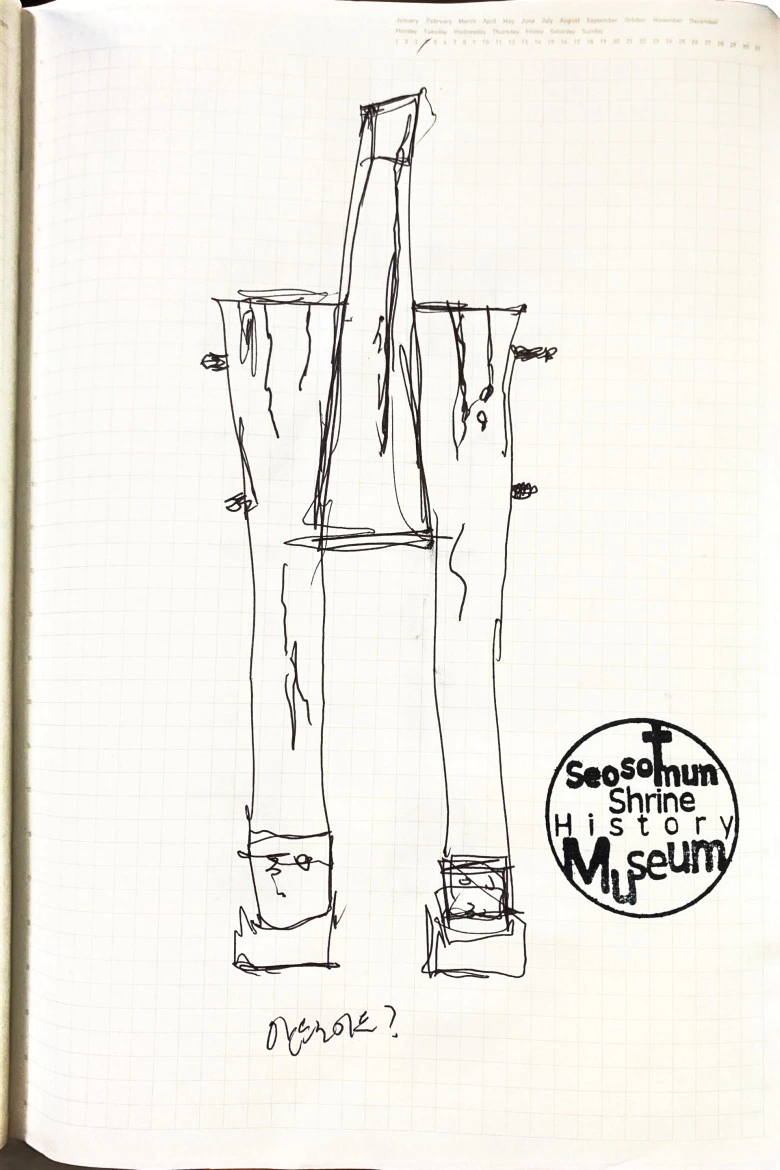 January February March April May June July August September October November December
Monday Tuesday Wednesday Thursday Friday Saturday Sunday
1 2 3 4 5 6 7 8 9 10 11 12 13 14 15 16 17 18 19 20 21 22 23 24 25 26 27 28 29 30 31
Seosomun
Shrine
History
Museum